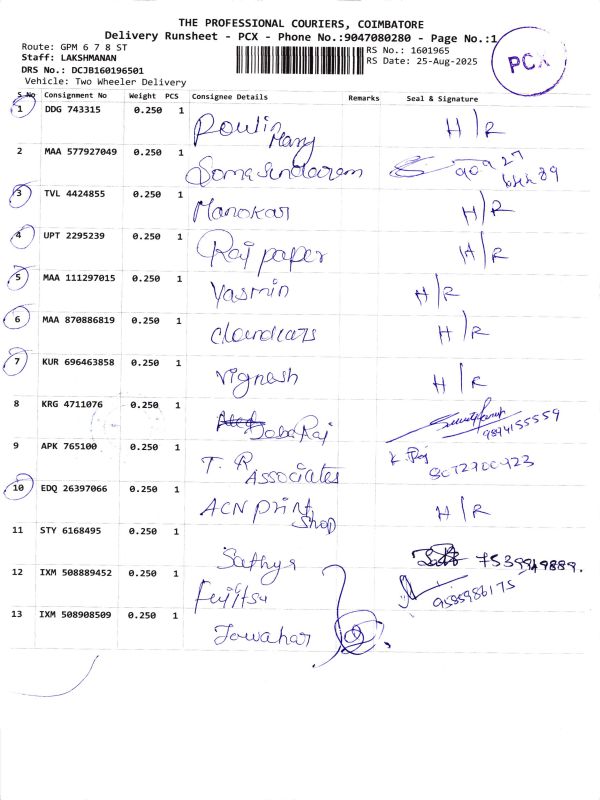 THE PROFESSIONAL COURIERS, COIMBATORE
Delivery Runsheet - PCX - Phone No.:9047080280 - Page No.:1
Route: GPM 6 7 8 ST
RS No.: 1601965
Staff: LAKSHMANAN
RS Date: 25-Aug-2025
DRS No.: DCJB160196501
Vehicle: Two Wheeler Delivery
PCX
S No Consignment No Weight PCS Consignee Details Remarks Seal & Signature
1 DDG 743315 0.250 1 Poulin Mary H/R
2 MAA 577927049 0.250 1 Somasundaram
3 TVL 4424855 0.250 1 Manokar H/R
4 UPT 2295239 0.250 1 Raj paper H/R
5 MAA 111297015 0.250 1 Yasmin H/R
6 MAA 870886819 0.250 1 H/R
7 KUR 696463858 0.250 1 Vignesh H/R
8 KRG 4711076 0.250 1 BabaRaj 9894155559
9 APK 765100 0.250 1 T. R Associates
10 EDQ 26397066 0.250 1 ACN Print Shop H/R
11 STY 6168495 0.250 1 Sathya
12 IXM 508889452 0.250 1 Fujitsu 9585986175
13 IXM 508908509 0.250 1 Jawahar